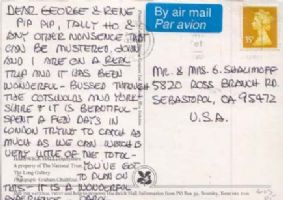 DEAR GEORGE & RENE
PIP PIP, TALLY HO &
ANY OTHER NONSENSE THAT
CAN BE MUSTERED. JOHN
AND I ARE ON A REAL
TRIP AND IT HAS BEEN
WONDERFUL - BUSSED THROUGH
THE COTSWOLDS AND YORK-
SHIRE & IT IS BEAUTIFUL
SPENT A FEW DAYS IN
LONDON TRYING TO CATCH AS
MUCH AS WE CAN WHICH IS
VERY LITTLE OF THE TOTAL -
YOU'VE GOT
TO PLAN ON
THIS - IT IS A WONDERFUL
EXPERIENCE
By air mail
Par avion
MR. & MRS. G. SHALIMOFF
5820 ROSS BRANCH RD.
SEBASTOPOL, CA 95472
U.S.A.
A property of The National Trust
The Long Gallery